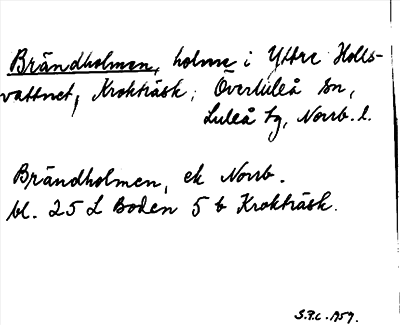 Brändholmen, holme i Yttre Holls-
vattnet, Krokträsk, Överluleå sn,
Luleå tg, Norrb. l.
Brändholmen, ek Norrb.
bl. 25 L Boden 5 b Krokträsk.